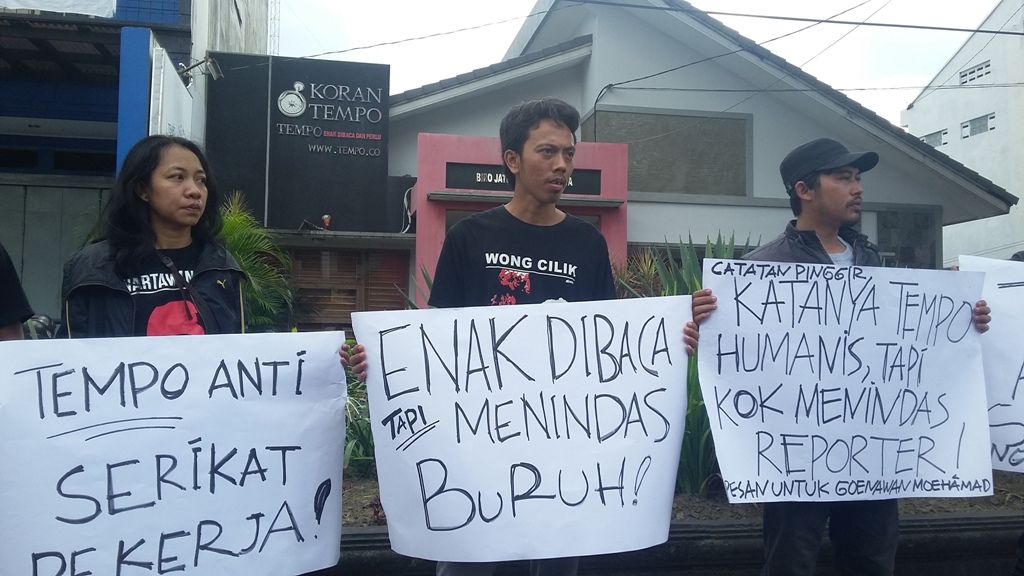 KORAN
TEMPO
TEMPO ENAK DIBACA DAN PERLU
WWW.TEMPO.CO
WONG CILIK
TEMPO ANTI
SERIKAT
PEKERJA!
ENAK DIBACA
TAPI MENINDAS
BURUH!
CATATAN PINGGIR
KATANYA TEMPO
HUMANIS, TAPI
KOK MENINDAS
REPORTER!
PESAN UNTUK GOENAWAN MOEHAMAD